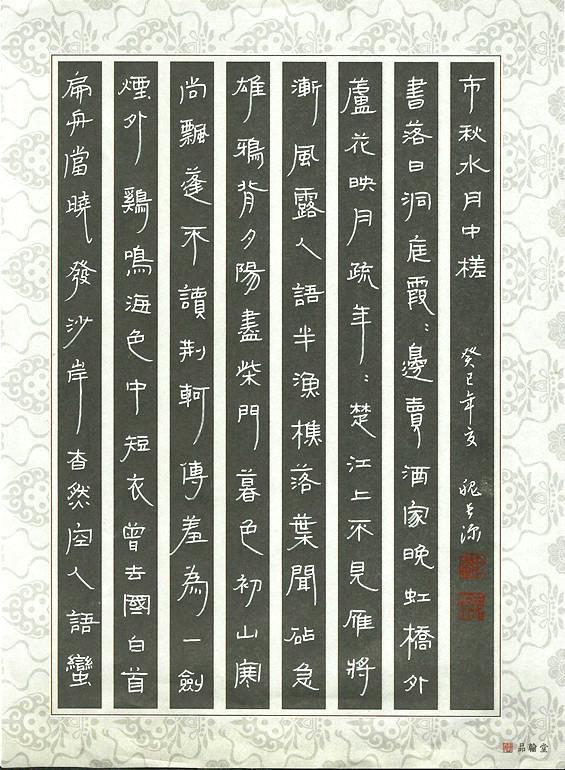 扁舟當曉發沙岸杳然空人語蠻
煙外鷄鳴海色中短衣曾去國白首
尚飄蓬不讀荆軻傳羞為一劍
雄鴉背夕陽盡柴門暮色初山寒
漸風露人語半漁樵落葉聞砧急
蘆花映月疏年〻楚江上不見雁將
書落日洞庭霞〻邊賣酒家晚虹橋外
市秋水月中槎
癸巳年亥
品翰堂